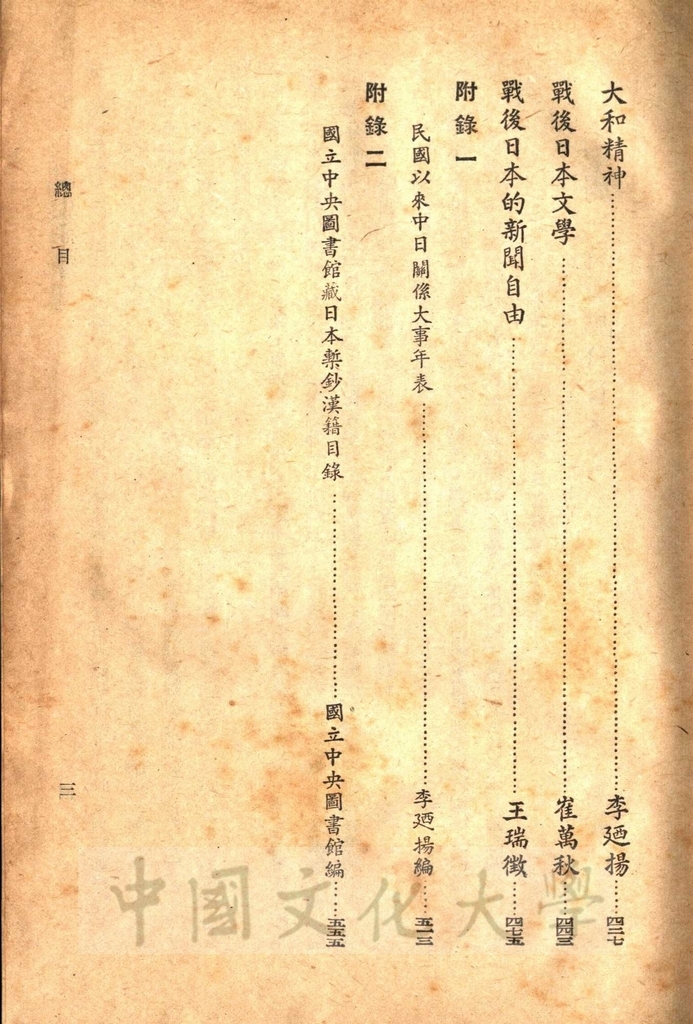 大和精神……李廼揚……四二七
戰後日本文學……崔萬秋……四四三
戰後日本的新聞自由……王瑞徵……四七五
附錄一
民國以來中日關係大事年表……李廼揚編……五一三
附錄二
國立中央圖書館藏日本槧鈔漢籍目錄……國立中央圖書館編……五五五
總目 三
中國文化大學